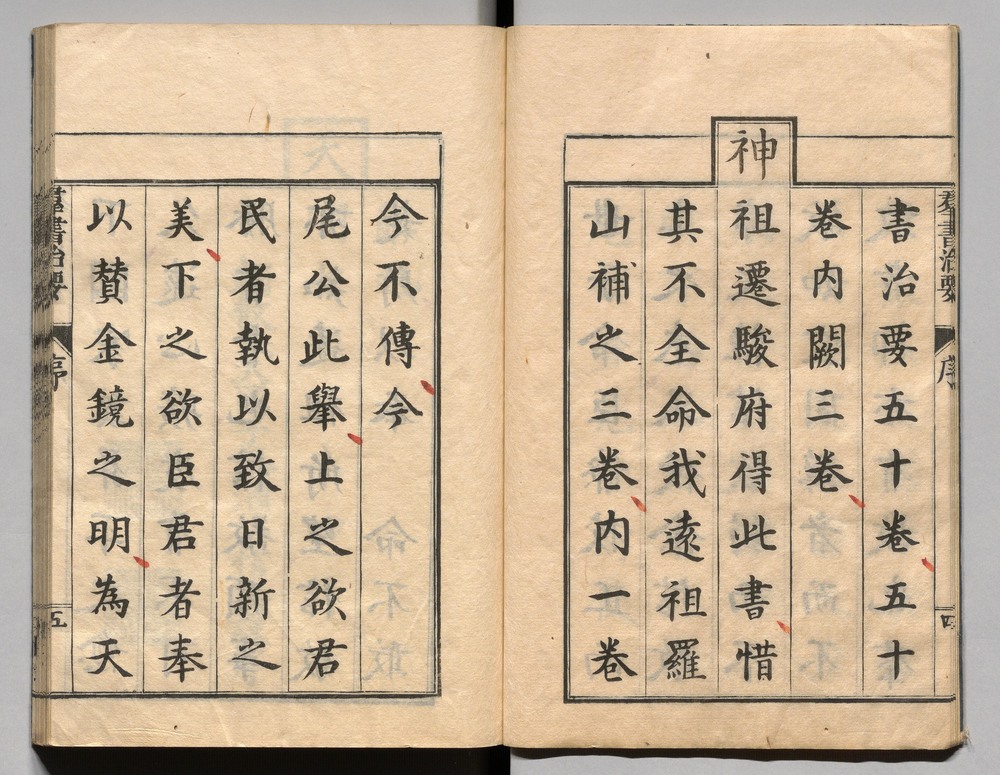 書治要五十卷五十
卷內闕三卷
神祖遷駿府得此書惜
其不全命我遠祖羅
山補之三卷內一卷
羣書治要 序 四
今不傳今
尾公此舉上之欲君
民者執以致日新之
美下之欲臣君者奉
以賛金鏡之明為天
羣書治要 序 五